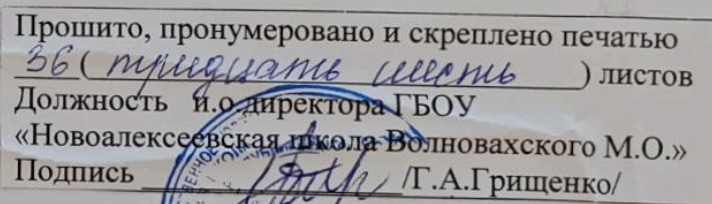 Прошито, пронумеровано и скреплено печатью
36 ( тридцать шесть ) листов
Должность и.о.директора ГБОУ
«Новоалексеевская школа Волновахского М.О.»
Подпись /Г.А.Грищенко/